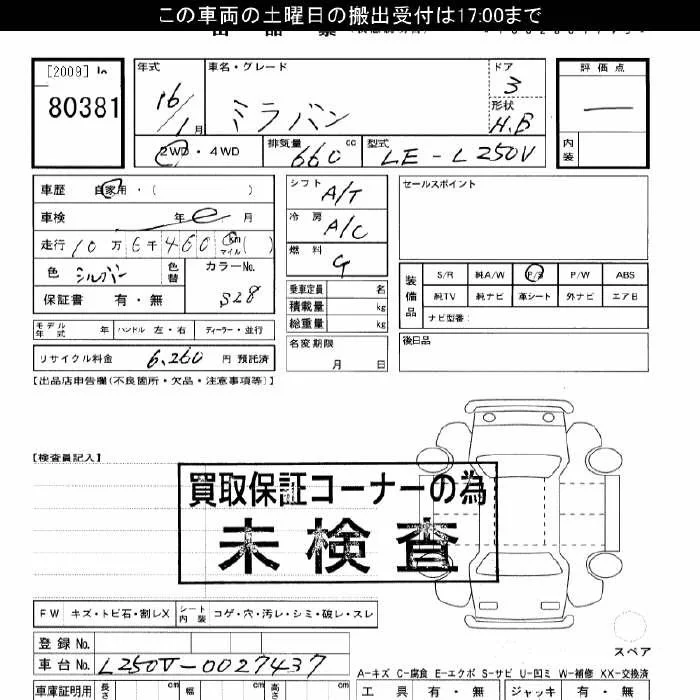 この車両の土曜日の搬出受付は17:00まで
[2009] In
80381
年式
16/1月
車名・グレード
ミラバン
ドア
3
形状
H.B
評価点
内装
2WD・4WD
排気量
660 cc
型式
LE-L250V
車歴 自家用・( )
車検 年 月
走行 10万6千460 km マイル ( )
色 シルバー 色替
カラーNo.
S28
保証書 有・無
シフト
A/T
冷房
A/C
燃料
G
乗車定員 名
積載量 kg
総重量 kg
名変期限
月 日
セールスポイント
装備品
S/R 純A/W P/S P/W ABS
純TV 純ナビ 革シート 外ナビ エアB
ナビ型番:
後日品
モデル年式 年 ハンドル 左・右 ディーラー・並行
リサイクル料金 6,260 円 預託済
【出品店申告欄(不良個所・欠品・注意事項等)】
【検査員記入】
買取保証コーナーの為
未検査
FW キズ・トビ石・割レX
シート内装 コゲ・穴・汚レ・シミ・破レ・スレ
登録 No.
車台 No. L250V-0027437
スペア
A-キズ C-腐食 E-エクボ S-サビ U-凹ミ W-補修 XX-交換済
車庫証明用 長さ cm 幅 cm 高さ cm
工具 有・無 ジャッキ 有・無